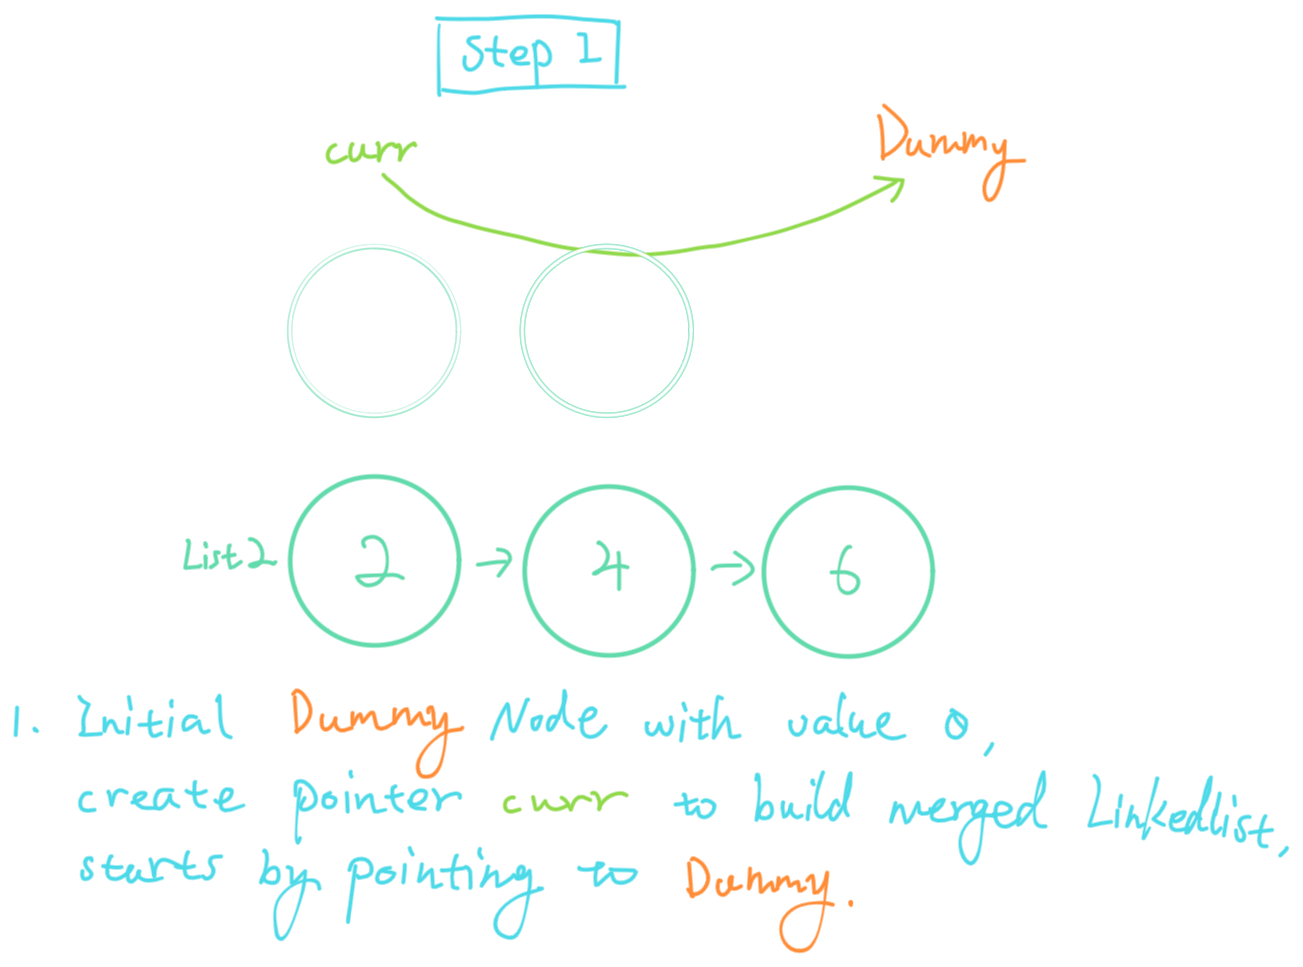 Step 1
curr Dummy
List2 2 → 4 → 6
1. Initial Dummy Node with value 0,
create pointer curr to build merged Linkedlist,
starts by pointing to Dummy.